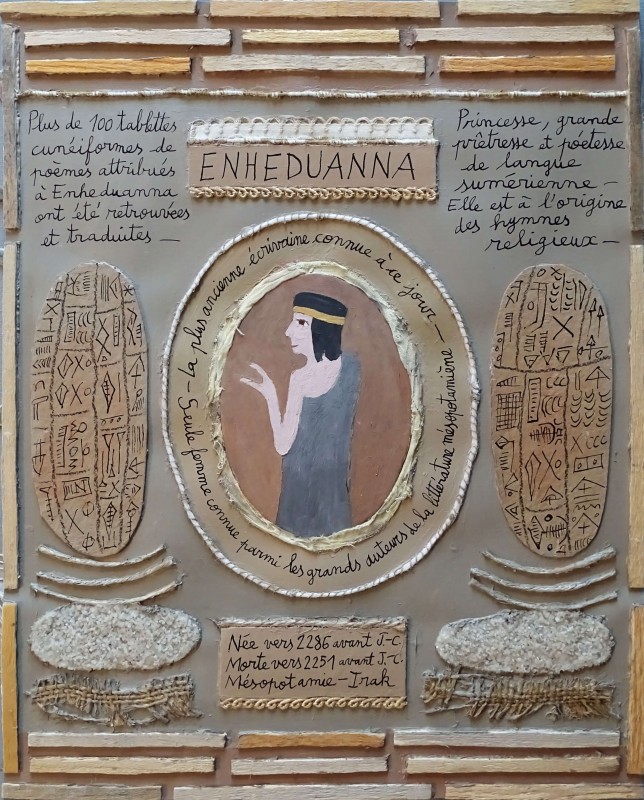 ENHEDUANNA
Plus de 100 tablettes
cunéiformes de
poèmes attribués
à Enheduanna
ont été retrouvées
et traduites —
Princesse, grande
prêtresse et poétesse
de langue
sumérienne —
Elle est à l'origine
des hymnes
religieux —
— La plus ancienne écrivaine connue à ce jour —
Seule femme connue parmi les grands auteurs de la littérature mésopotamiène —
Née vers 2286 avant J-C.
Morte vers 2251 avant J-C.
Mésopotamie – Irak